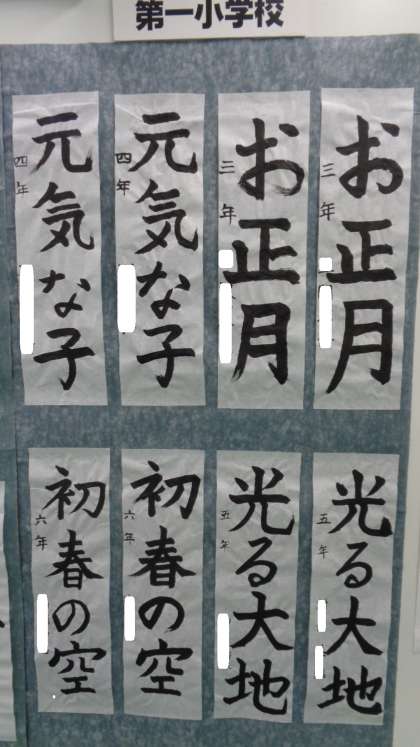 第一小学校
お正月
三年
お正月
三年
元気な子
四年
元気な子
四年
光る大地
五年
光る大地
五年
初春の空
六年
初春の空
六年